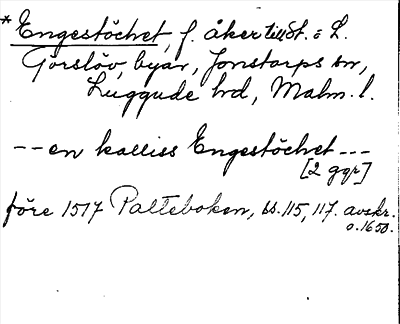 *Engestöchet, f. åker till St. o L.
Görslöv, byar, Jonstorps sn,
Luggude hd, Malm. l.
-- en kalliss Engestöchet ---
[2 ggr]
före 1517 Palteboken, ss. 115, 117. avskr.
o. 1650.